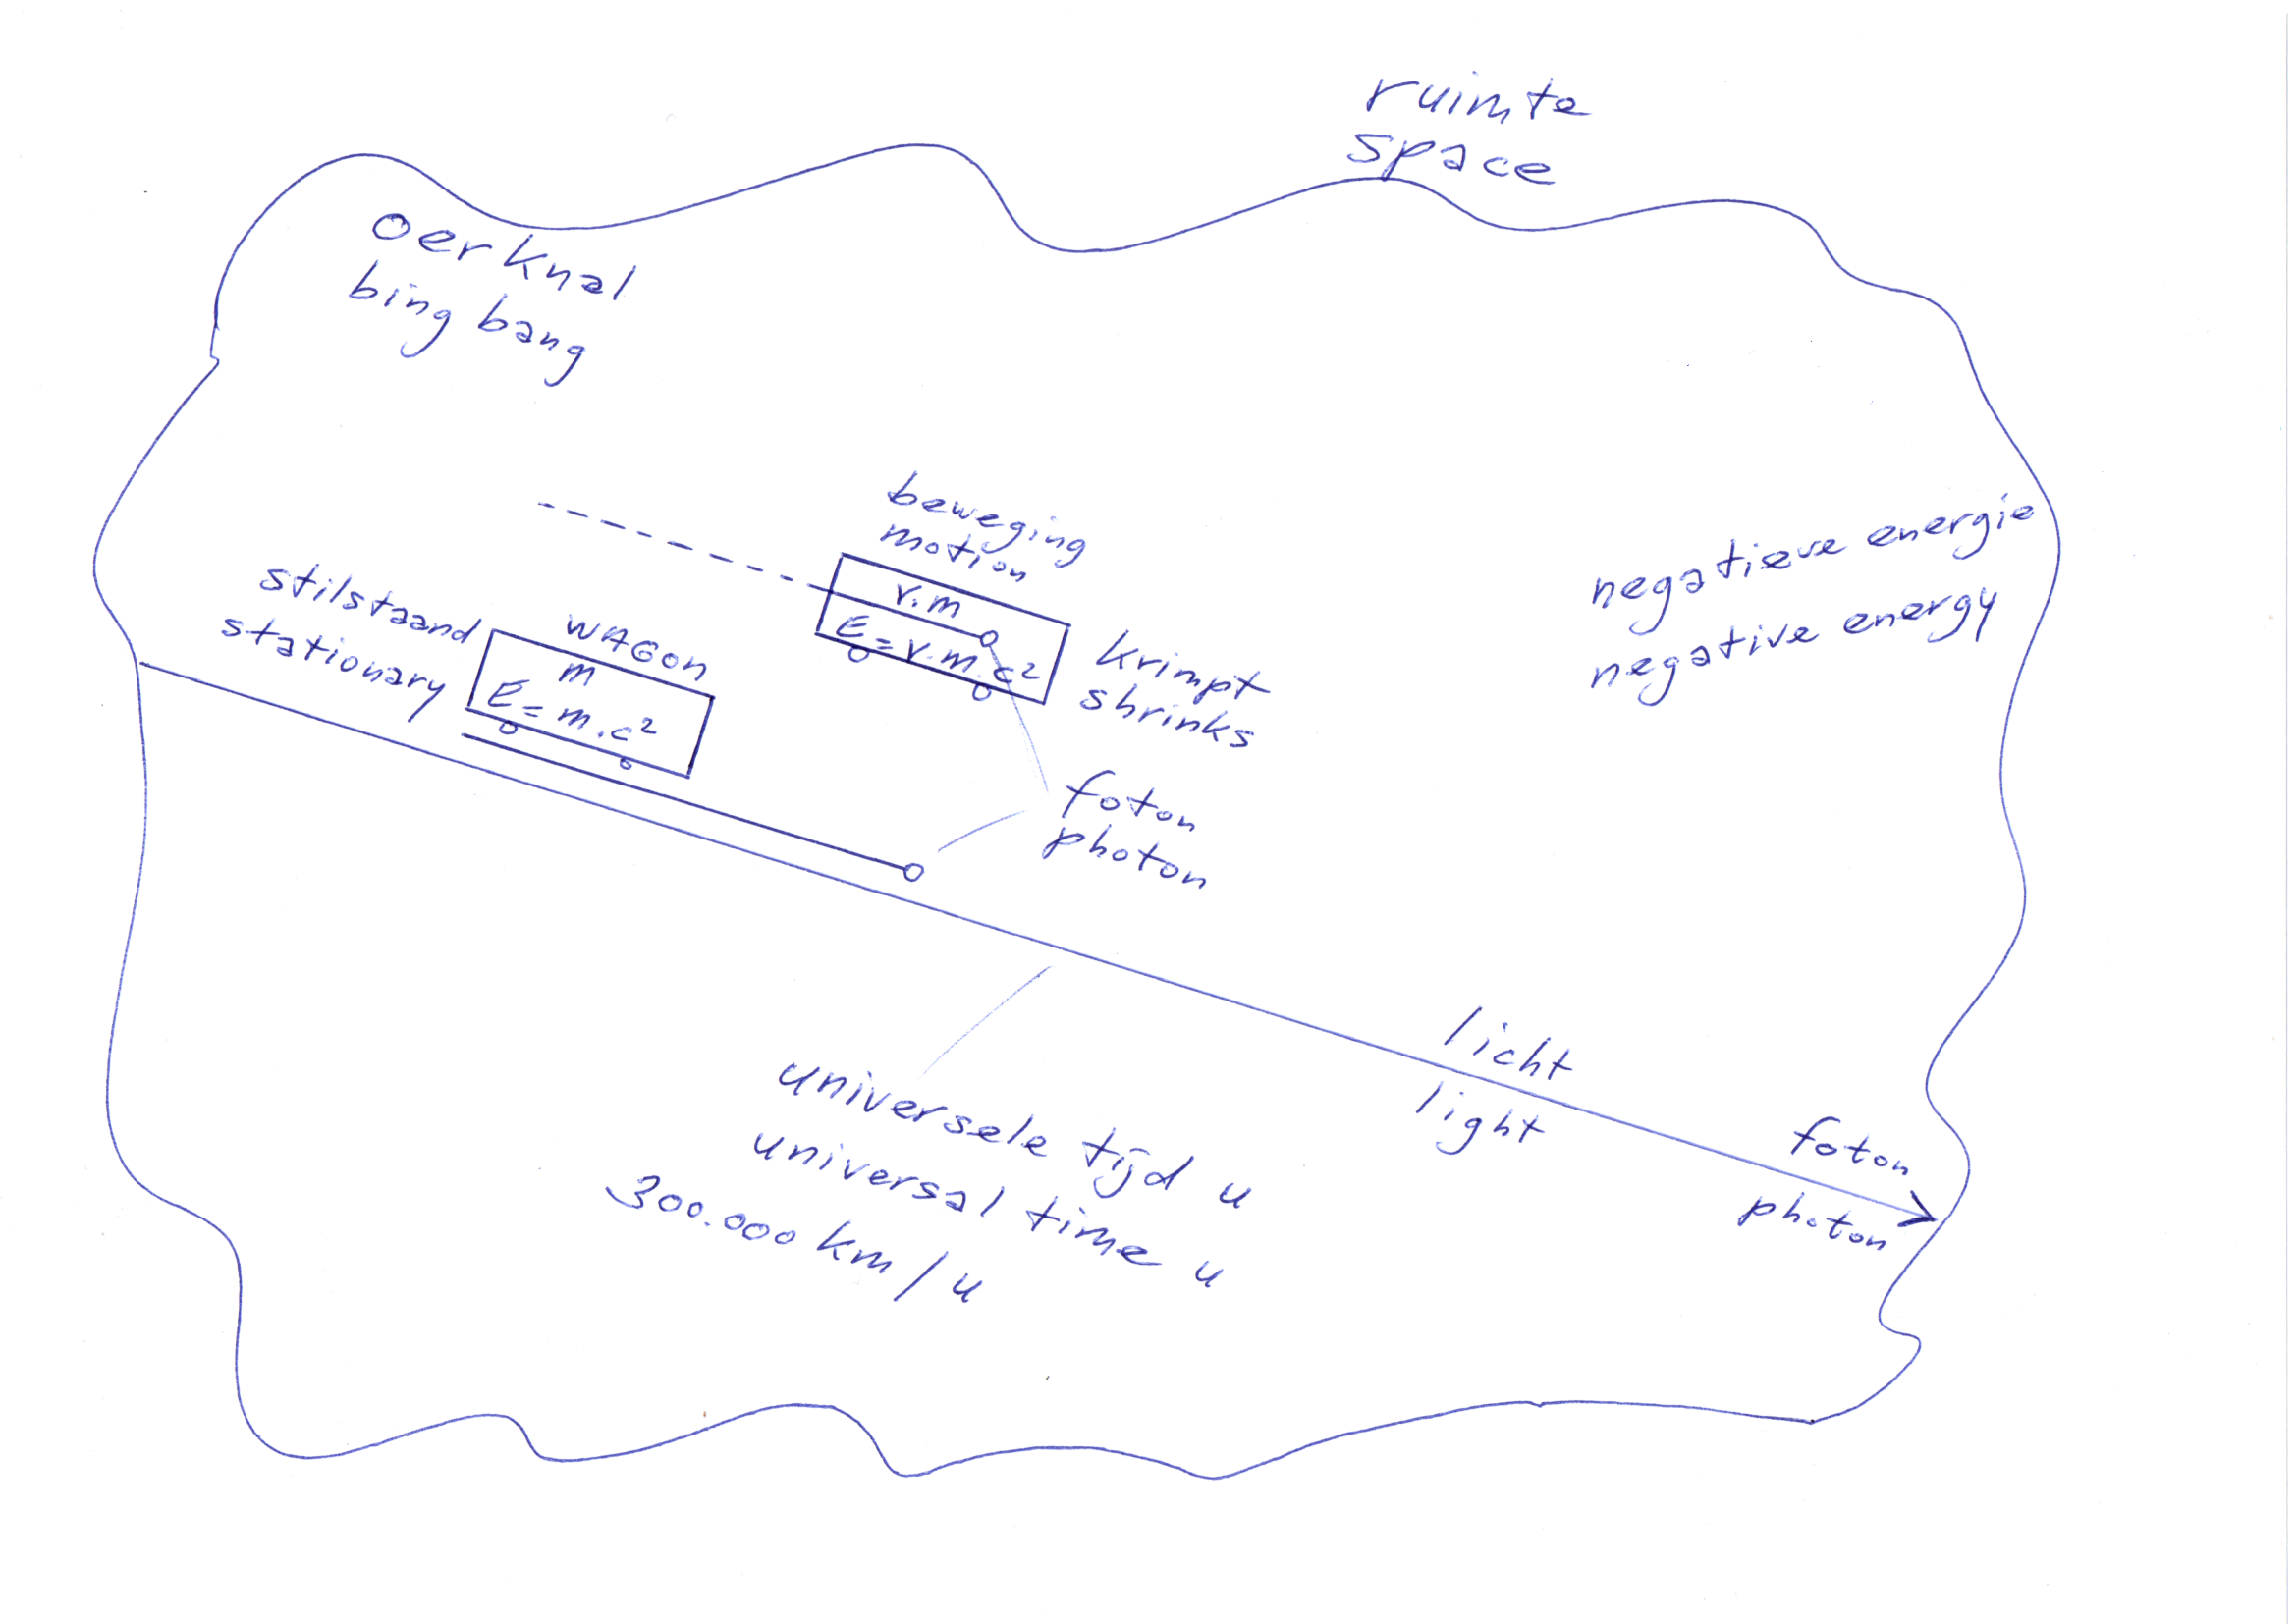 ruimte
space
oerknal
bing bang
beweging
motion
γ.m
E=γ.m.c²
krimpt
shrinks
negatieve energie
negative energy
stilstaand
stationary
WAGON
m
E=m.c²
foton
photon
licht
light
foton
photon
universele tijd u
universal time u
300.000 km/u